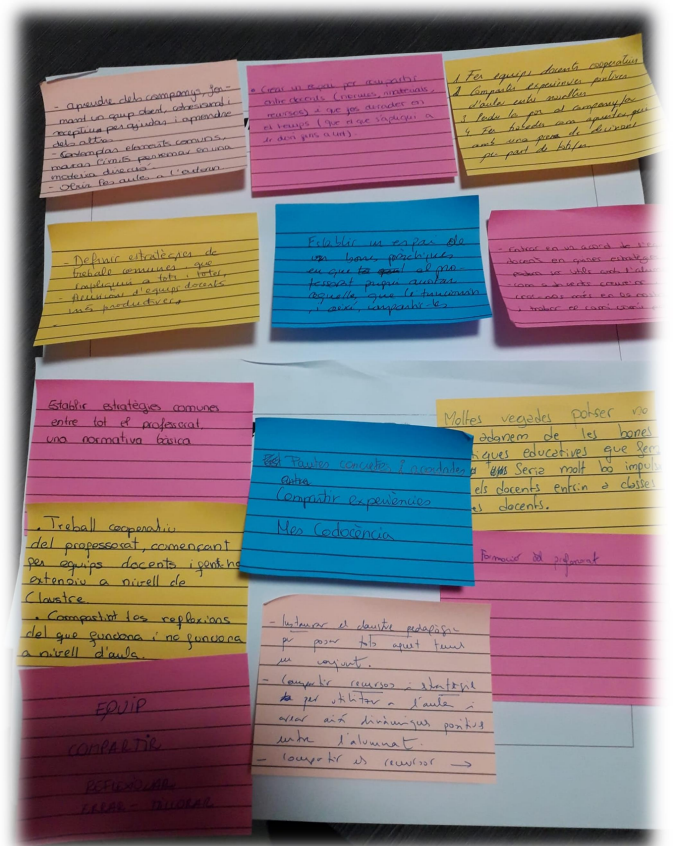 - aprendre dels companys, for-
mant un grup obert, cohesionat i
receptiu per ajudar i aprendre
dels altres.
- Contemplar elements comuns,
marcar límits per remar en una
mateixa direcció
- Obrir les aules a l'entorn
• Crear un espai per compartir
entre docents (normes, materials,
recursos) i que
el temps (que el que s'apliqui a
1r don pas a 2on).
1. Fer equips docents cooperatius
2. Compartir experiències positives
d'aules entre nosaltres
3. Perdre la por al company/a
4. Fer
amb una
per part de tots/es
- Definir estratègies de
treball comunes, que
s'apliquin a tots i totes.
- Reunions d'equips docents
més productives
Establir un espai de
bones pràctiques
en que el pro-
fessorat pugui anotar
aquelles que le funcionin
i així, compartir-les
- Entrar en un acord de
docents en quines estratègies
poden ser útils amb
com a docents
més en
i trobar un camí
Establir estratègies comunes
entre tot el professorat,
una normativa bàsica
Pautes concretes I
Compartir experiències
Mes Codocència
Moltes vegades potser no
adonem de les bones
iques educatives que fem
Seria molt bo impul
els docents entrin a classes
es docents.
. Treball cooperatiu
del professorat, començant
per equips docents i fent-ho
extensiu a nivell de
Claustre.
. Compartint les reflexions
del que funciona i no funciona
a nivell d'aula.
Formació del professorat
- Instaurar el claustre pedagògic
per posar tots aquest temes
en conjunt.
- Compartir recursos i
per utilitzar a l'aula i
crear així dinàmiques positives
entre l'alumnat.
- Compartir es recursos →
EQUIP
COMPARTIR
REFLEXIONAR
ERRAR - MILLORAR